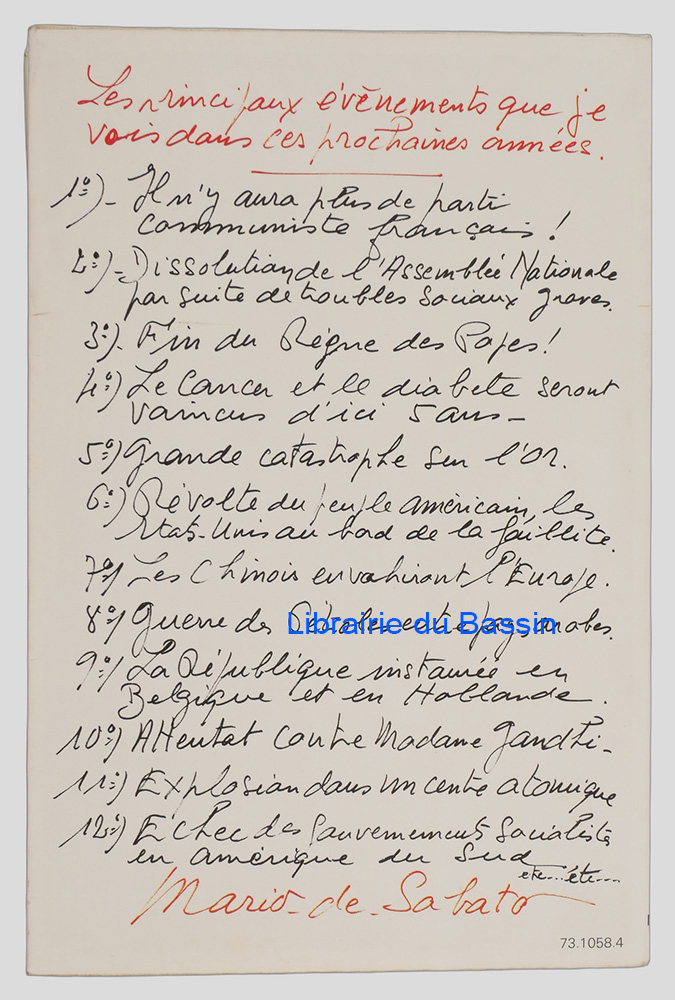 Les principaux évènements que je
vois dans ces prochaines années.
1º)- Il n'y aura plus de parti
communiste français !
2º)- Dissolution de l'Assemblée Nationale
par suite de troubles sociaux graves.
3º)- Fin du Règne des Papes !
4º) Le Cancer et le diabète seront
vaincus d'ici 5 ans -
5º) Grande catastrophe sur l'Or.
6º) Révolte du peuple américain, les
Etats-Unis au bord de la faillite.
7º) Les Chinois envahiront l'Europe.
8º) Guerre des Pétroles entre pays arabes.
Librairie du Bassin
9º) La République instaurée en
Belgique et en Hollande.
10º) Attentat contre Madame Gandhi -
11º) Explosion dans un centre atomique
12º) Echec des Gouvernements Socialistes
en amérique du Sud
etc... etc...
Mario-de-Sabato
73.1058.4